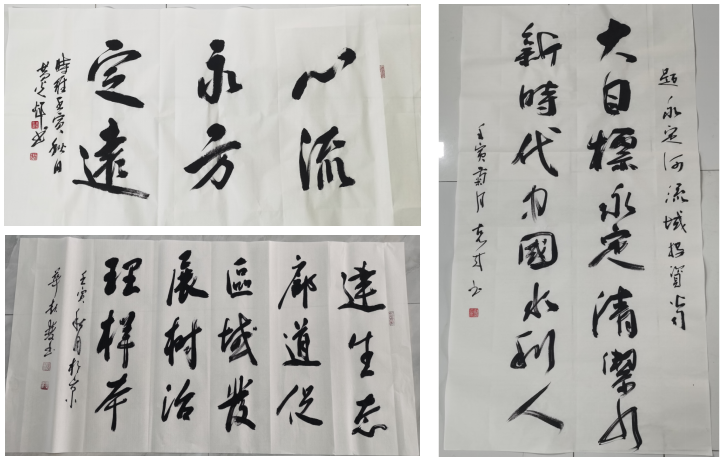 心流
永方
定遠
時在壬寅秋日
建生态
廊道促
區域發
展树治
理样本
壬寅秋月於京
題永定河流域投資公司
大目標永定清潔水
新時代中國水利人
壬寅菊月